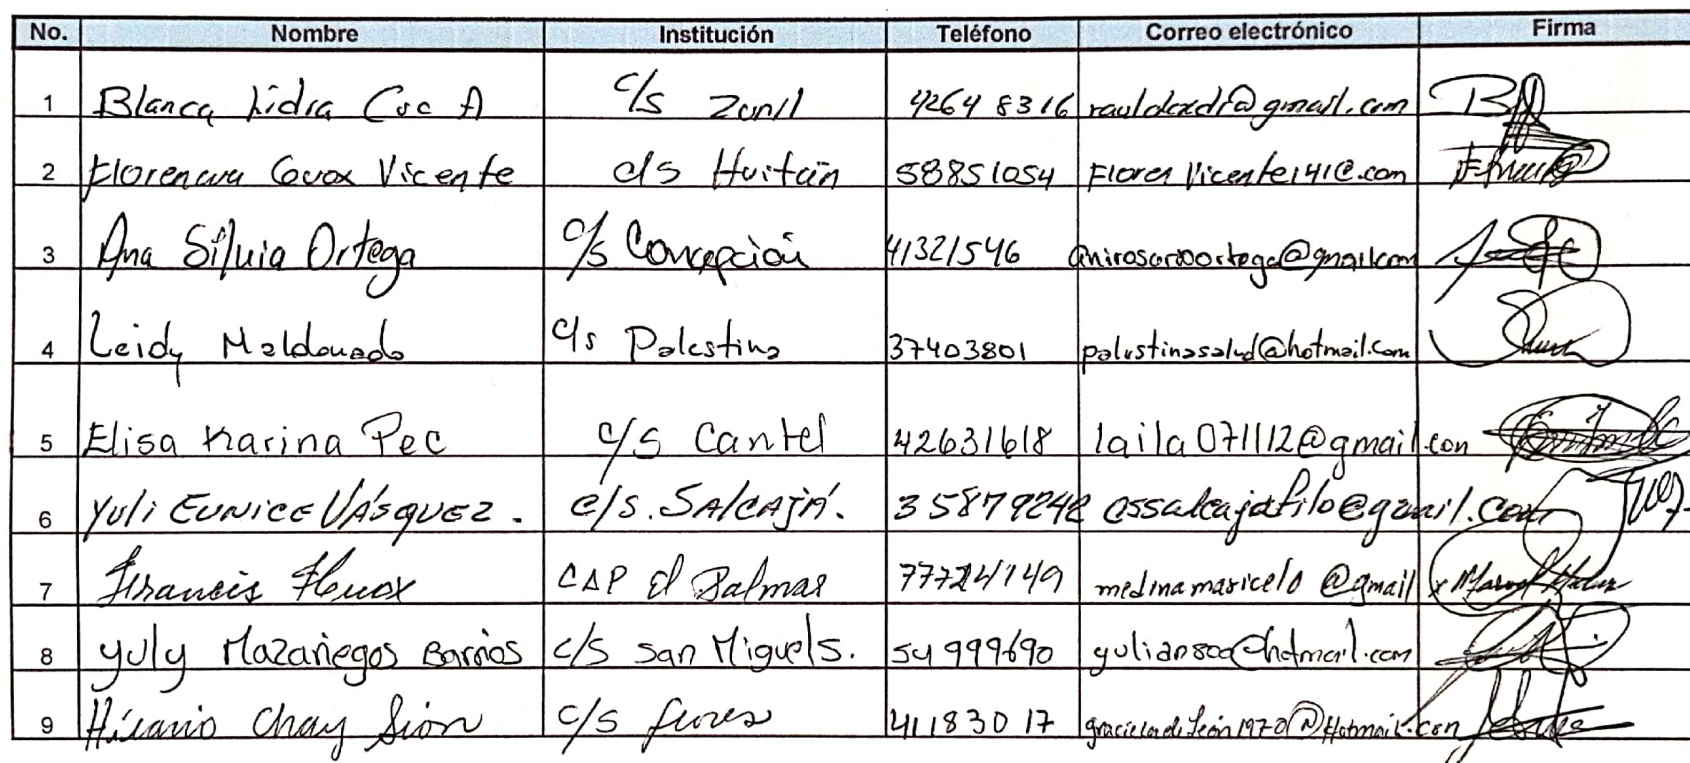 No. Nombre Institución Teléfono Correo electrónico Firma
1 Blanca Lidia Coc A c/s Zunil 4264 8316 @gmail.com
2 Vicente c/s Huitán 58851054 Flores Vicente141@.com
3 Ana Silvia Ortega c/s Concepción 41321546 @gmail.com
4 Leidy Maldonado c/s Palestina 37403801 palestinasalud@hotmail.com
5 Elisa Karina Pec c/s Cantel 42631618 laila071112@gmail.com
6 Yuli EUNICE VÁSQUEZ. c/s. SALCAJÁ. 35879242 @gmail.com
7 Francis CAP El Palmar 77724149 medinamaricelo @gmail
8 yuly Mazariegos Barrios c/s San Miguel S. 54999690 @hotmail.com
9 Chay c/s flores 411830 17 @Hotmail.con